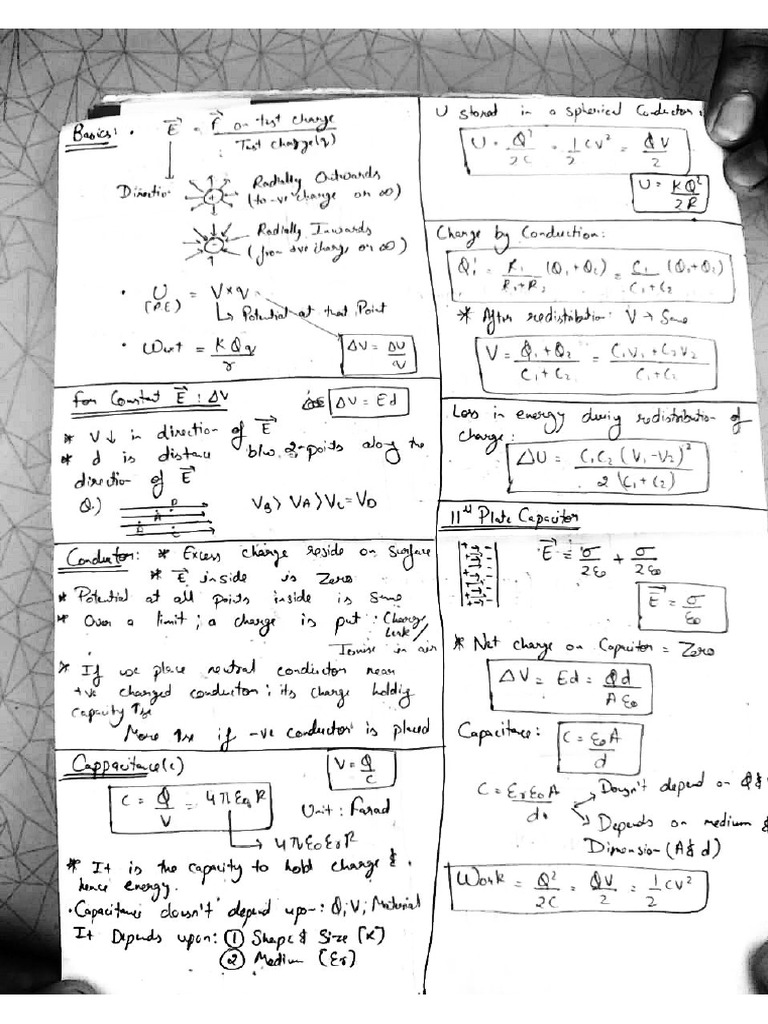 Basics: • E⃗ = F⃗ on test charge / Test charge(q)
Direction
Radially Outwards
(to -ve charge or ∞)
Radially Inwards
(from +ve charge or ∞)
• U = V×q
(P.E)
↳ Potential at that Point
• Wext = KQq / r
ΔV = ΔU / q
For Constant E⃗ : ΔV
ΔV = Ed
* V↓ in direction of E⃗
* d is distance b/w 2-points along the
direction of E⃗
Q.)
A
B
C
D
VB > VA > VC = VD
Conductor: * Excess charge reside on Surface
* E⃗ inside is Zero
* Potential at all points inside is Same
* Over a limit; a charge is put : Charge
Leak/
Ionise in air
* If we place neutral conductor near
+ve charged conductor; its charge holding
capacity ↑se
More ↑se if -ve conductor is placed
Cappacitance(c)
V = Q / C
C = Q / V = 4πε₀R
Unit : Farad
↳ 4πε₀εrR
* It is the capacity to hold charge &
hence energy.
• Capacitance doesn't depend upon: Q, V, Material
It Depends upon: ① Shape & Size (R)
② Medium (εr)
U stored in a spherical Conductor:
U = Q² / 2C = 1/2 CV² = QV / 2
U = KQ² / 2R
Charge by Conduction:
Q₁' = R₁ / R₁+R₂ (Q₁+Q₂) = C₁ / C₁+C₂ (Q₁+Q₂)
* After redistribution: V → Same
V = Q₁+Q₂ / C₁+C₂ = C₁V₁+C₂V₂ / C₁+C₂
Loss in energy during redistribution of
charge:
ΔU = C₁C₂ (V₁-V₂)² / 2 (C₁+C₂)
11ˡˡ Plate Capacitor
E⃗ = σ / 2ε₀ + σ / 2ε₀
E⃗ = σ / ε₀
* Net charge on Capacitor = Zero
ΔV = Ed = Qd / Aε₀
Capacitance: C = ε₀A / d
C = εrε₀A / d
Doesn't depend on Q &
Depends on medium &
Dimension (A & d)
Work = Q² / 2C = QV / 2 = 1/2 CV²